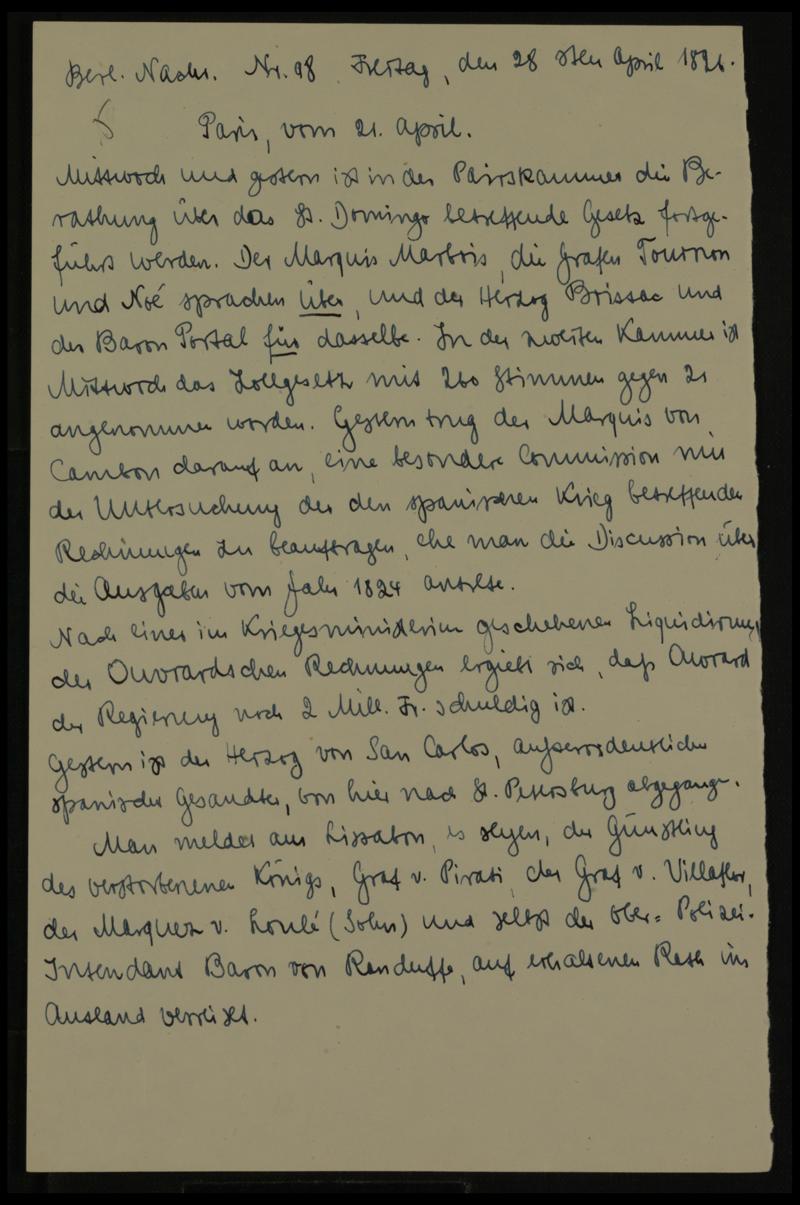 Berl. Nachr. Nr. 98 Freitag, den 28sten April 1826.
Paris, vom 21. April.
Mittwoch und gestern ist in der Pairskammer die Be-
rathung über das St. Domingo betreffende Gesetz fortge-
führt worden. Der Marquis Marbois, die Grafen Tournon
und Noé sprachen über, und der Herzog Brissac und
der Baron Portal für dasselbe. In der zweiten Kammer ist
Mittwoch das Zollgesetz mit 260 Stimmen gegen 21
angenommen worden. Gestern trug der Marquis von
Cambon darauf an, eine besondere Commission mit
der Untersuchung der den spanischen Krieg betreffenden
Rechnungen zu beauftragen, ehe man die Discussion über
die Ausgaben vom Jahr 1824 antrete.
Nach einer im Kriegesministerium geschehenen Liquidirung
der Ouvrardschen Rechnungen ergiebt sich, daß Ouvrard
der Regierung noch 2 Mill. Fr. schuldig ist.
Gestern ist der Herzog von San Carlos, außerordentlicher
spanischer Gesandter, von hier nach St. Petersburg abgegangen.
Man meldet aus Lissabon, es seyen, der Günstling
des verstorbenen Königs, Graf v. Pirati, der Graf v. Villaflor,
der Marquez v. Loulé (Sohn) und selbst der Ober-Polizei-
Intendant Baron von Renduffe, auf erhaltenen Rath ins
Ausland verreist.